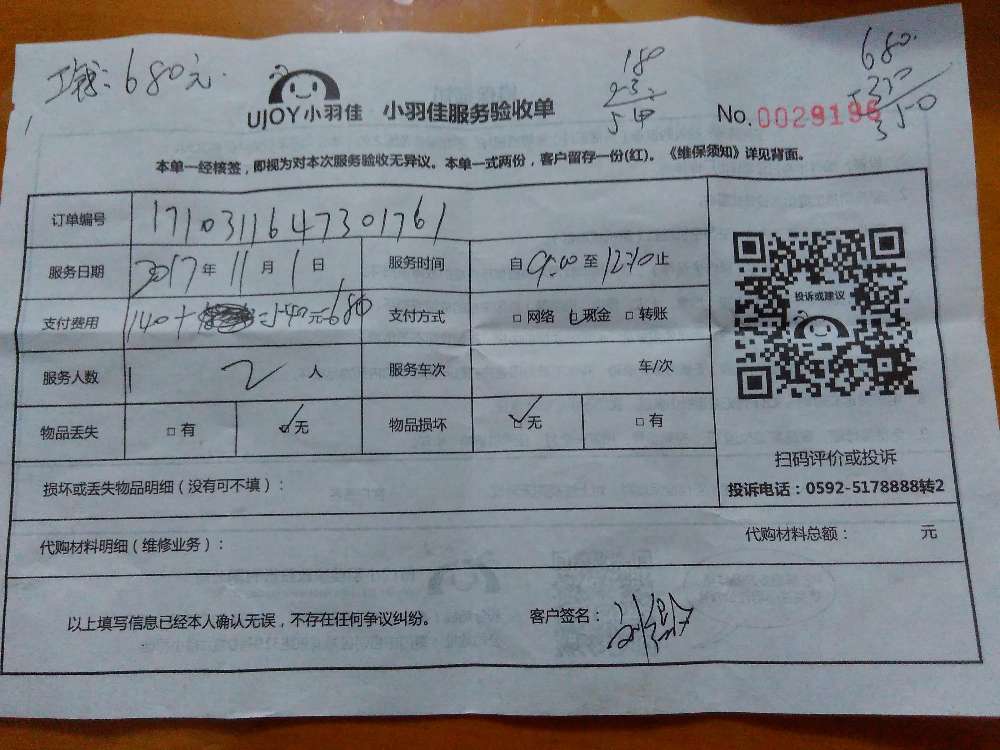 工钱:680元.
180
680.
UJOY小羽佳 小羽佳服务验收单
No.0029196
本单一经核签，即视为对本次服务验收无异议。本单一式两份，客户留存一份(红)。《维保须知》详见背面。
订单编号 1710311647301761
服务日期 2017年11月1日 服务时间 自9:00至12:30止
支付费用 140+ =540元 680 支付方式 □网络 ☑现金 □转账
投诉或建议
服务人数 2人 服务车次 车/次
物品丢失 □有 ☑无 物品损坏 ☑无 □有
扫码评价或投诉
损坏或丢失物品明细（没有可不填）：
投诉电话：0592-5178888转2
代购材料明细（维修业务）： 代购材料总额： 元
以上填写信息已经本人确认无误，不存在任何争议纠纷。 客户签名：